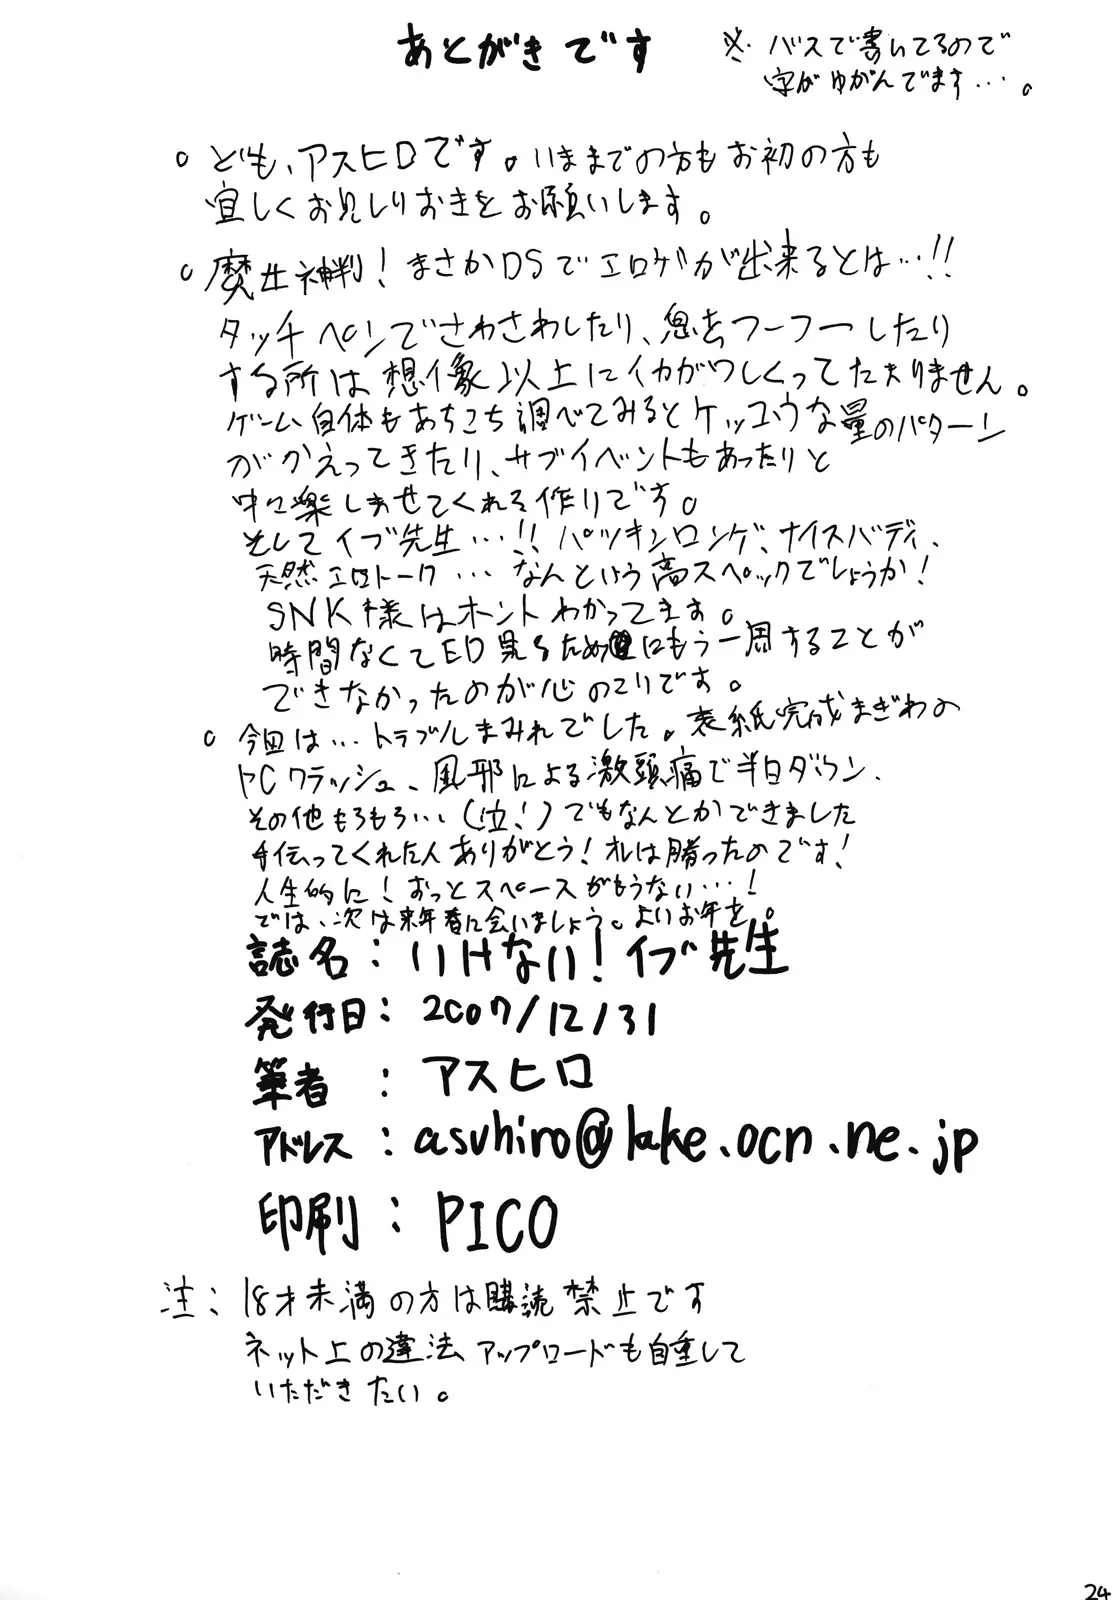 あとがきです
※バスで書いてるので
字がゆがんでます…。
。ども、アスヒロです。いままでの方もお初の方も
宜しくお見しりおきをお願いします。
。魔女神判！まさかDSでエロゲが出来るとは…!!
タッチペンでさわさわしたり、息をフーフーしたり
する所は想像以上にイカがわしくってたまりません。
ゲーム自体もあちこち調べてみるとケッコウな量のパターン
がかえってきたり、サブイベントもあったりと
中々楽しませてくれる作りです。
そしてイブ先生…!!パツキンロンゲ、ナイスバディ、
天然エロトーク…なんという高スペックでしょうか！
SNK様はホントわかってます。
時間なくてED見るためにもう一周することが
できなかったのが心のこりです。
。今回は…トラブルまみれでした。表紙完成まぎわの
PCクラッシュ、風邪による激頭痛で半日ダウン、
その他もろもろ…(泣！)でもなんとかできました
手伝ってくれた人ありがとう！オレは勝ったのです！
人生的に！おっとスペースがもうない…！
では、次は来年春に会いましょう。よいお年を。
誌名：いけない！イブ先生
発行日：2007/12/31
筆者：アスヒロ
アドレス：asuhiro@lake.ocn.ne.jp
印刷：PICO
注：18才未満の方は購読禁止です
ネット上の違法アップロードも自重して
いただきたい。
24